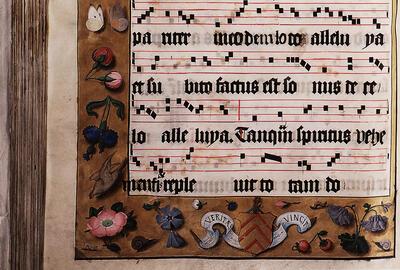 pariter in eodem loco allelu ya
et su bito factus est so nus de ce
lo alle luya. Tanq̄m spiritus vehe
mentis reple uit to tam do
VERITAS VINCIT